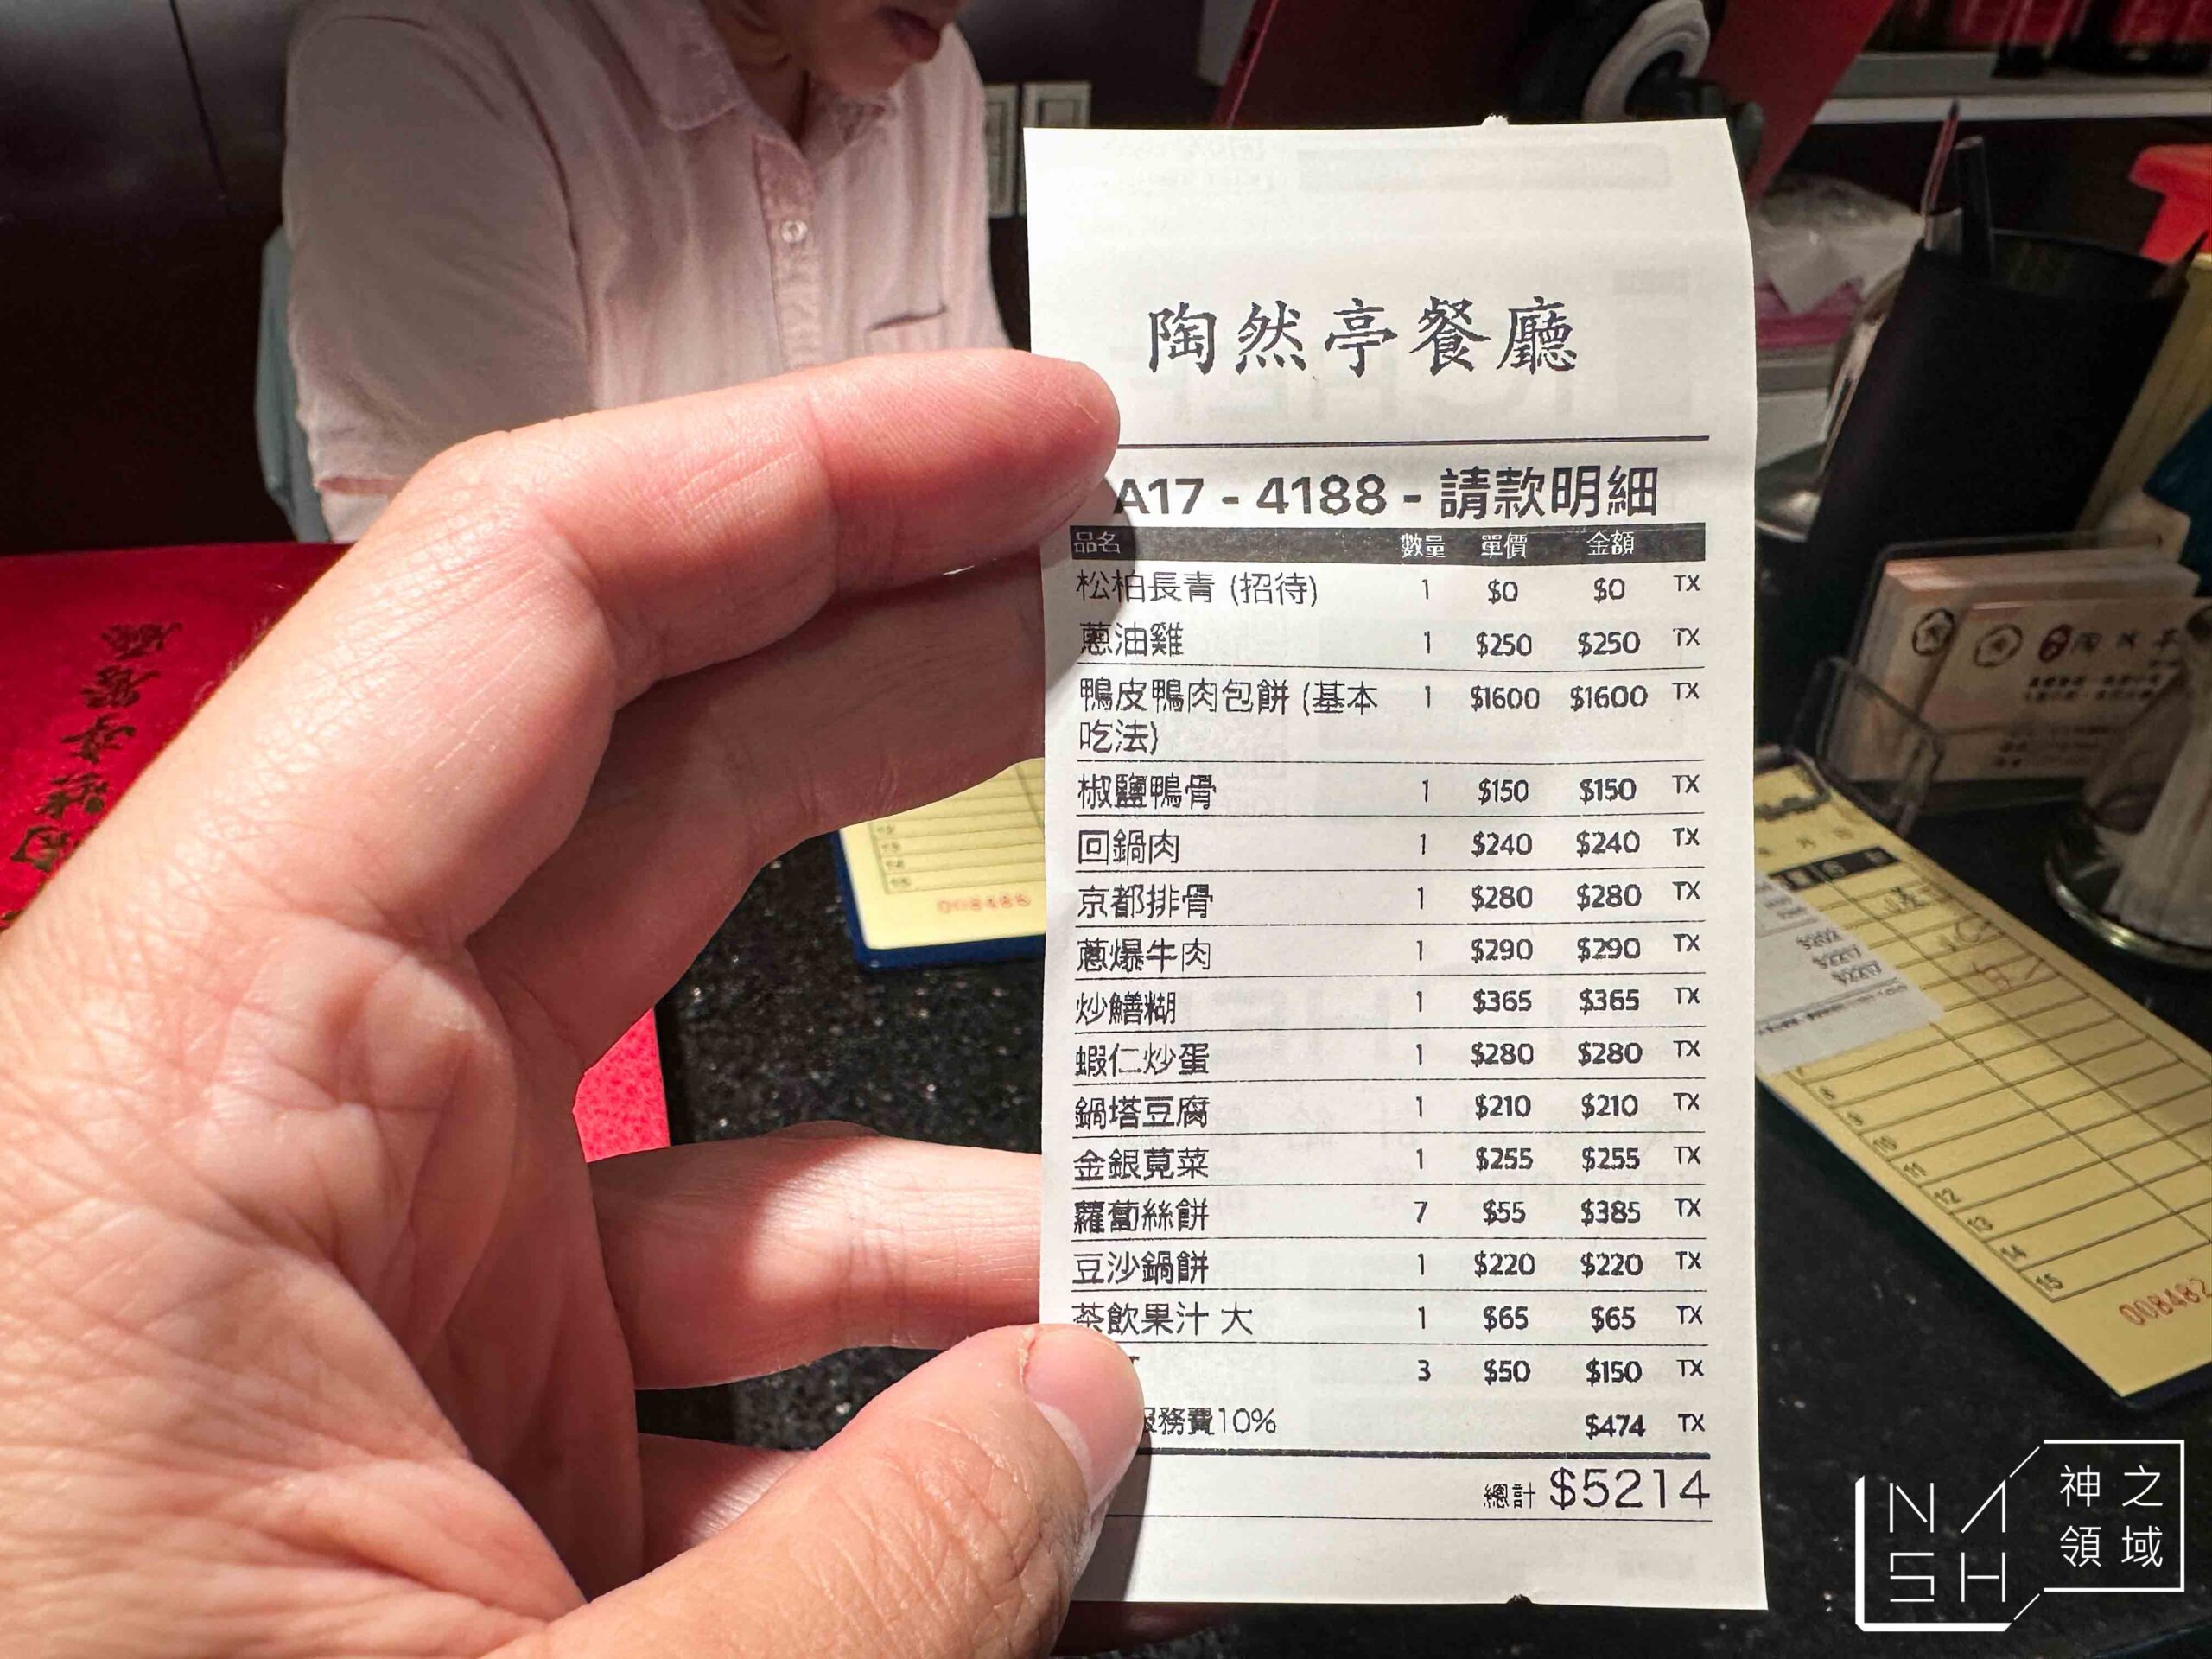 陶然亭餐廳
A17 - 4188 - 請款明細
品名 數量 單價 金額
松柏長青 (招待) 1 $0 $0 TX
蔥油雞 1 $250 $250 TX
鴨皮鴨肉包餅 (基本 1 $1600 $1600 TX
吃法)
椒鹽鴨骨 1 $150 $150 TX
回鍋肉 1 $240 $240 TX
京都排骨 1 $280 $280 TX
蔥爆牛肉 1 $290 $290 TX
炒鱔糊 1 $365 $365 TX
蝦仁炒蛋 1 $280 $280 TX
鍋塔豆腐 1 $210 $210 TX
金銀莧菜 1 $255 $255 TX
蘿蔔絲餅 7 $55 $385 TX
豆沙鍋餅 1 $220 $220 TX
茶飲果汁 大 1 $65 $65 TX
3 $50 $150 TX
服務費10% $474 TX
總計 $5214
008486
008482
NASH
神之
領域